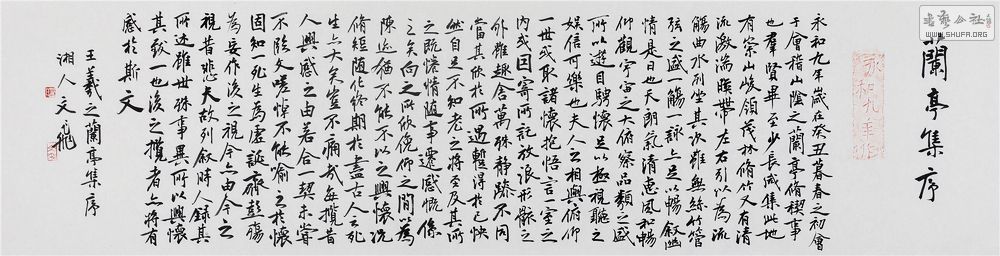 蘭亭集序
永和九年歲在癸丑暮春之初會
于會稽山陰之蘭亭脩禊事
也群賢畢至少長咸集此地
有崇山峻領茂林脩竹又有清
流激湍暎帶左右引以為流
觴曲水列坐其次雖無絲竹管
弦之盛一觴一詠亦足以暢敘幽
情是日也天朗氣清惠風和暢
仰觀宇宙之大俯察品類之盛
所以遊目騁懷足以極視聽之
娛信可樂也夫人之相與俯仰
一世或取諸懷抱悟言一室之
內或因寄所託放浪形骸之
外雖趣舍萬殊靜躁不同
當其欣於所遇蹔得於己怏
然自足不知老之將至及其所
之既惓情隨事遷感慨係
之矣向之所欣俛仰之間以為
陳迹猶不能不以之興懷況
脩短隨化終期於盡古人云死
生亦大矣豈不痛哉每攬昔
人興感之由若合一契未嘗
不臨文嗟悼不能喻之於懷
固知一死生為虛誕齊彭殤
為妄作後之視今亦由今之
視昔悲夫故列敘時人錄其
所述雖世殊事異所以興懷
其致一也後之攬者亦將有
感於斯文
王羲之蘭亭集序
湘人文飛
WWW.SHUFA.ORG